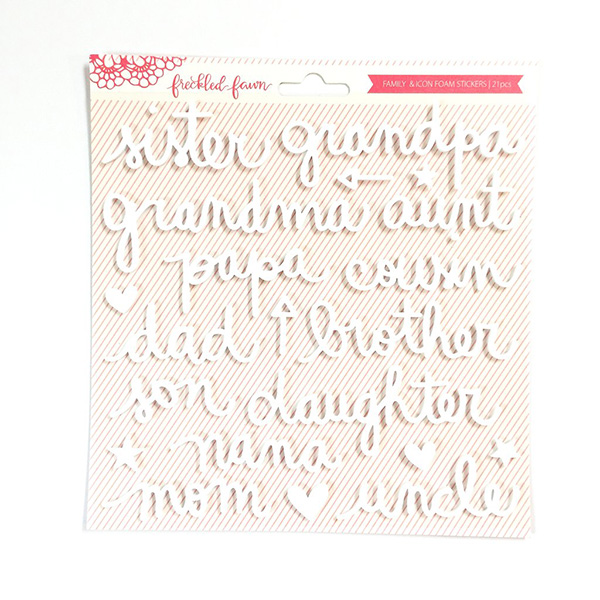 freckled-fawn
FAMILY & ICON FOAM STICKERS | 21pcs
sister grandpa
grandma aunt
papa cousin
dad brother
son daughter
nana
mom uncle